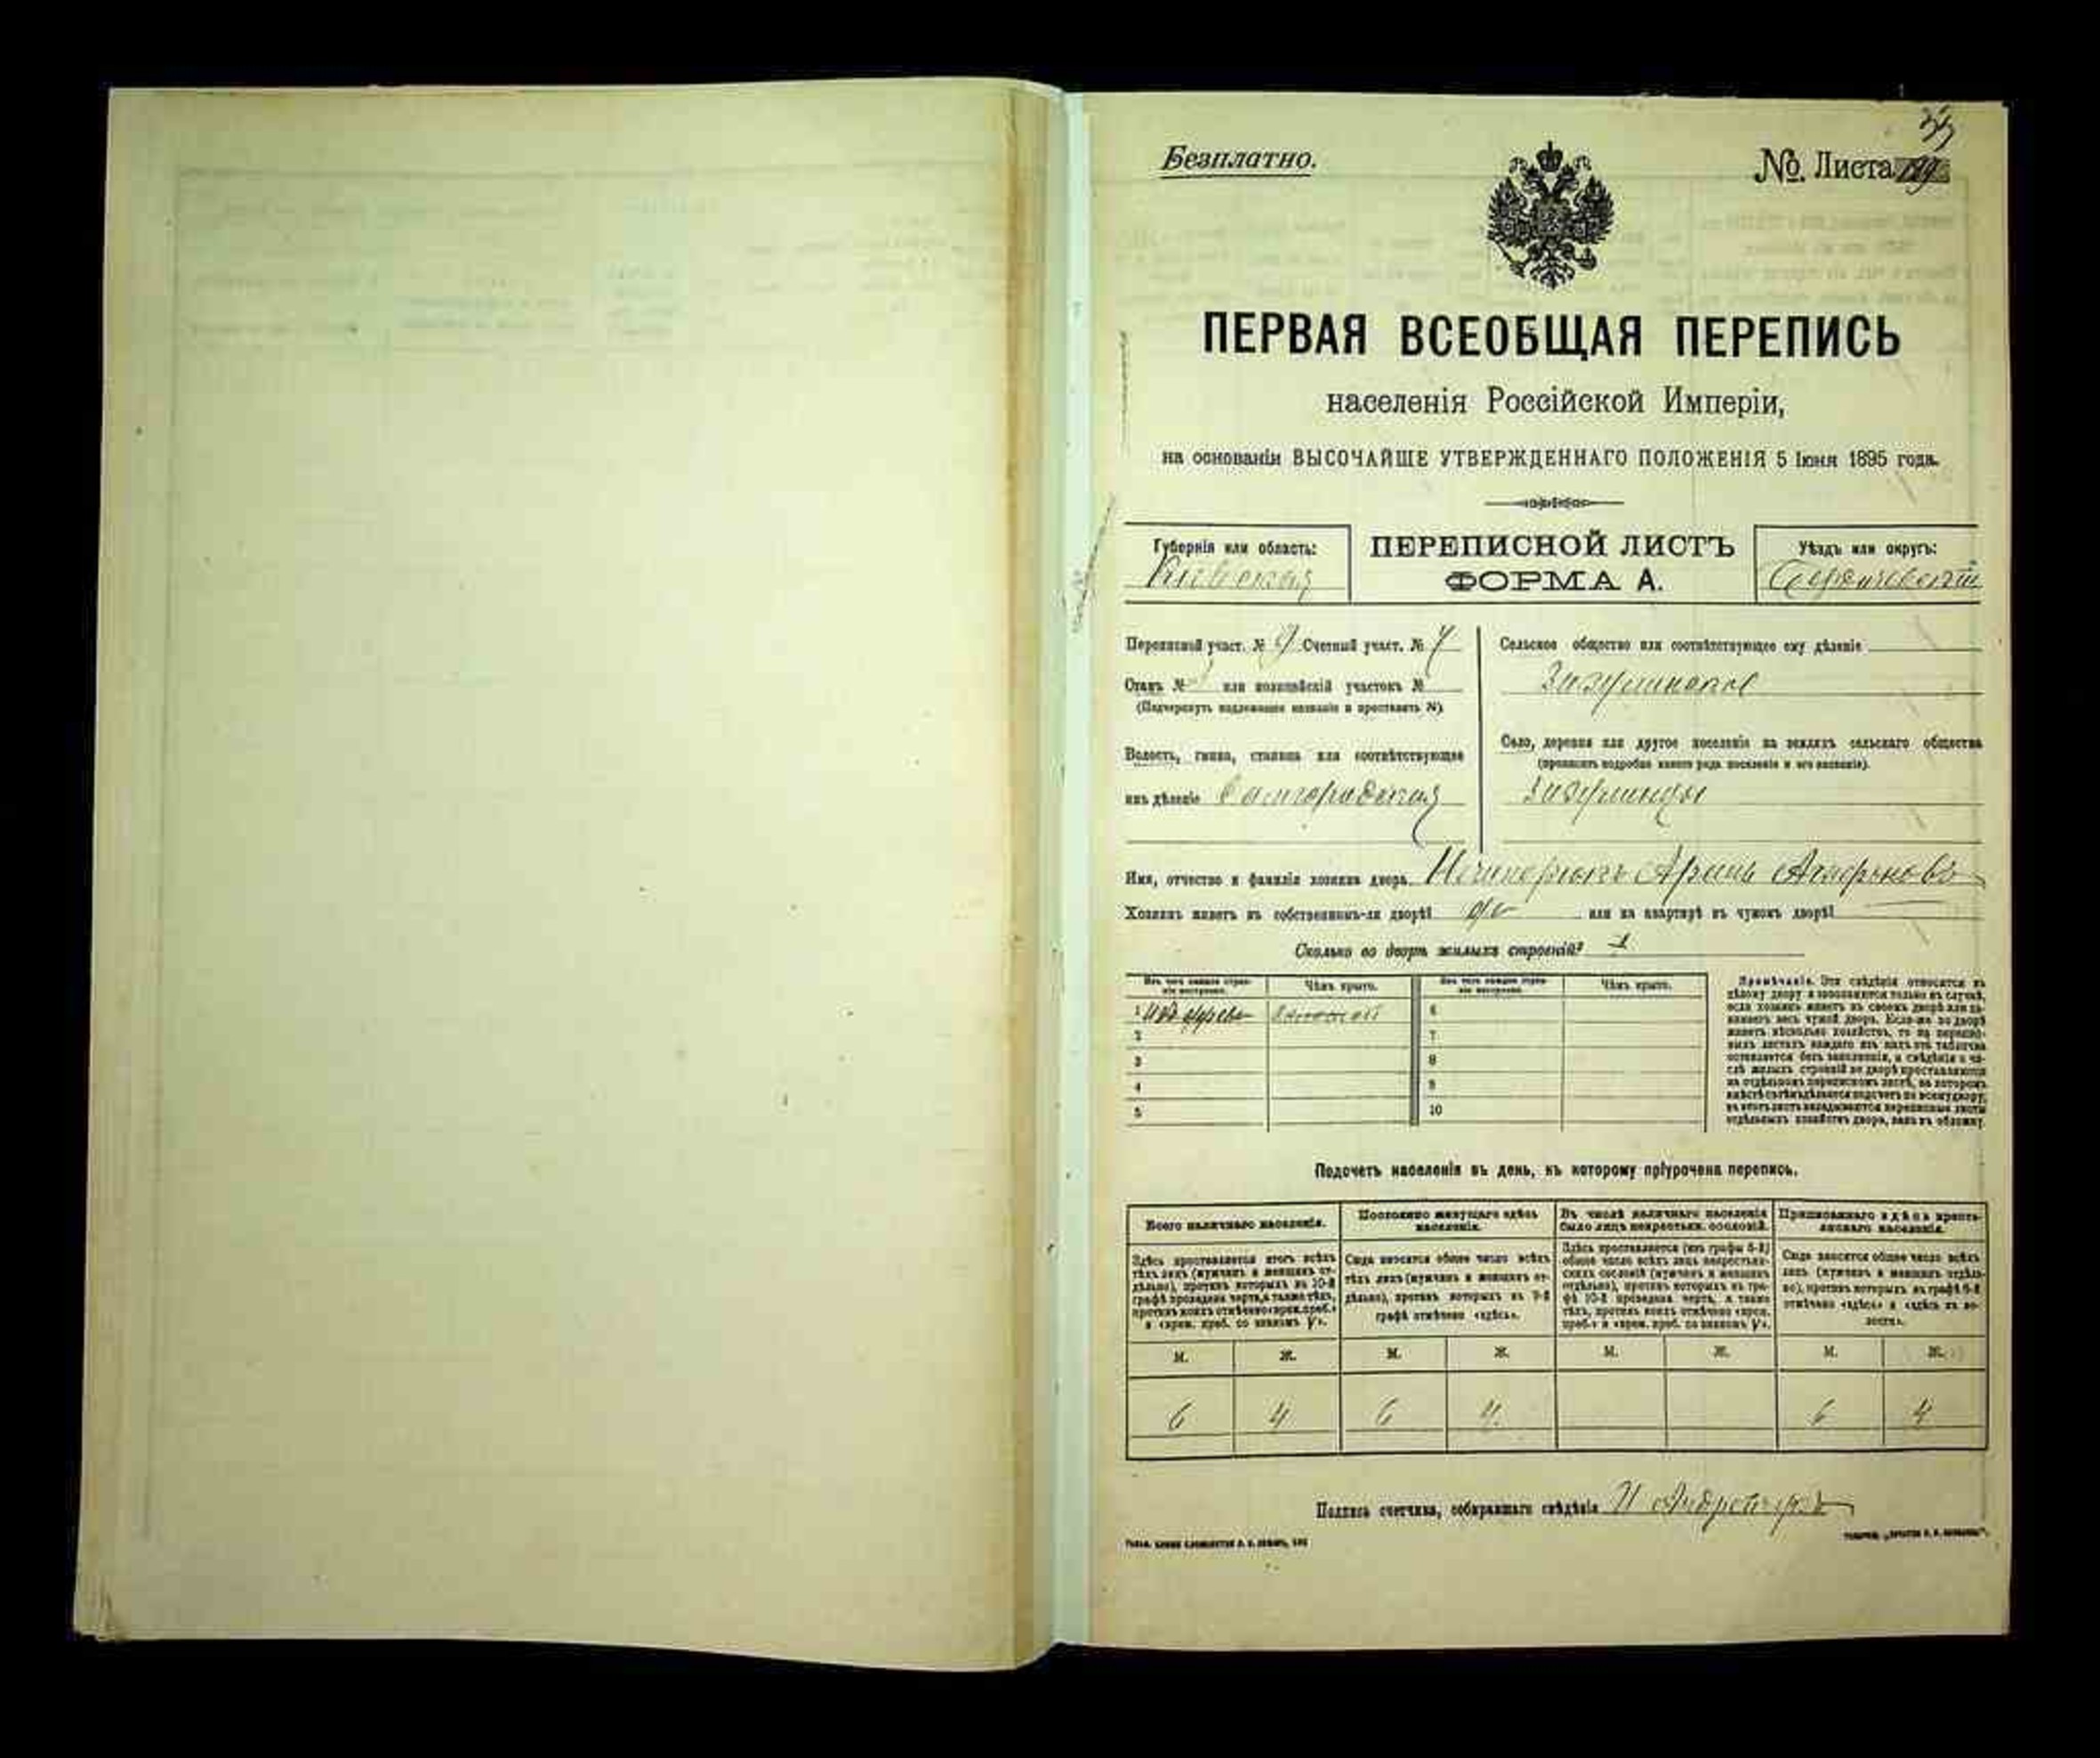 Безплатно.
№. Листа
ПЕРВАЯ ВСЕОБЩАЯ ПЕРЕПИСЬ
населенія Россійской Имперіи,
на основаніи ВЫСОЧАЙШЕ УТВЕРЖДЕННАГО ПОЛОЖЕНІЯ 5 Іюня 1895 года.
Губернія или область:
Кіевская
ПЕРЕПИСНОЙ ЛИСТЪ
ФОРМА А.
Уѣздъ или округъ:
Бердичевскій
Переписной участ. № 9 Счетный участ. №
Станъ № или полицейскій участокъ №
(Подчеркнуть надлежащее названіе и проставить №).
Волость, гмина, станица или соотвѣтствующее
имъ дѣленіе Самгородская
Сельское общество или соотвѣтствующее ему дѣленіе
Зозулинское
Село, деревня или другое поселеніе на земляхъ сельскаго общества
(прописать подробно какого рода поселеніе и его названіе).
Зозулинцы
Имя, отчество и фамилія хозяина двора
Хозяинъ живетъ въ собственномъ-ли дворѣ? да или на квартирѣ въ чужомъ дворѣ?
Сколько во дворѣ жилыхъ строеній? 1
Изъ чего каждое строеніе построено.
Чѣмъ крыто.
Изъ чего каждое строеніе построено.
Чѣмъ крыто.
1 Изъ дерева Соломой 6
2 7
3 8
4 9
5 10
Примѣчаніе. Эти свѣдѣнія относятся къ
цѣлому двору и заполняются только въ случаѣ,
если хозяинъ живетъ въ своемъ дворѣ или за-
нимаетъ весь чужой дворъ. Если-же во дворѣ
живетъ нѣсколько хозяйствъ, то на перепис-
ныхъ листахъ каждаго изъ нихъ эта табличка
оставляется безъ заполненія, а свѣдѣнія о чи-
слѣ жилыхъ строеній во дворѣ проставляются
на отдѣльномъ переписномъ листѣ, на которомъ
вмѣстѣ съ тѣмъ дѣлается подсчетъ по всему двору;
въ этотъ листъ вкладываются переписные листы
отдѣльныхъ хозяйствъ двора, какъ въ обложку.
Подсчетъ населенія въ день, къ которому пріурочена перепись.
Всего наличнаго населенія.
Постоянно живущаго здѣсь
населенія.
Въ числѣ наличнаго населенія
было лицъ некрестьян. сословій.
Приписаннаго здѣсь кресть-
янскаго населенія.
Здѣсь проставляется итогъ всѣхъ
тѣхъ лицъ (мужчинъ и женщинъ от-
дѣльно), противъ которыхъ въ 10-й
графѣ проведена черта, а также тѣхъ,
противъ коихъ отмѣчено «врем. преб.»
и «врем. преб. со знакомъ V».
Сюда вносится общее число всѣхъ
тѣхъ лицъ (мужчинъ и женщинъ от-
дѣльно), противъ которыхъ въ 9-й
графѣ отмѣчено «здѣсь».
Здѣсь проставляется (изъ графы 5-й)
общее число всѣхъ лицъ некрестьян-
скихъ сословій (мужчинъ и женщинъ
отдѣльно), противъ которыхъ въ гра-
фѣ 10-й проведена черта, а также
тѣхъ, противъ коихъ отмѣчено «врем.
преб.» и «врем. преб. со знакомъ V».
Сюда вносится общее число всѣхъ
лицъ (мужчинъ и женщинъ отдѣль-
но), противъ которыхъ въ графѣ 8-й
отмѣчено «здѣсь» и «здѣсь въ во-
лости».
М. Ж. М. Ж. М. Ж. М. Ж.
6 4 6 4 6 4
Подпись счетчика, собиравшаго свѣдѣнія